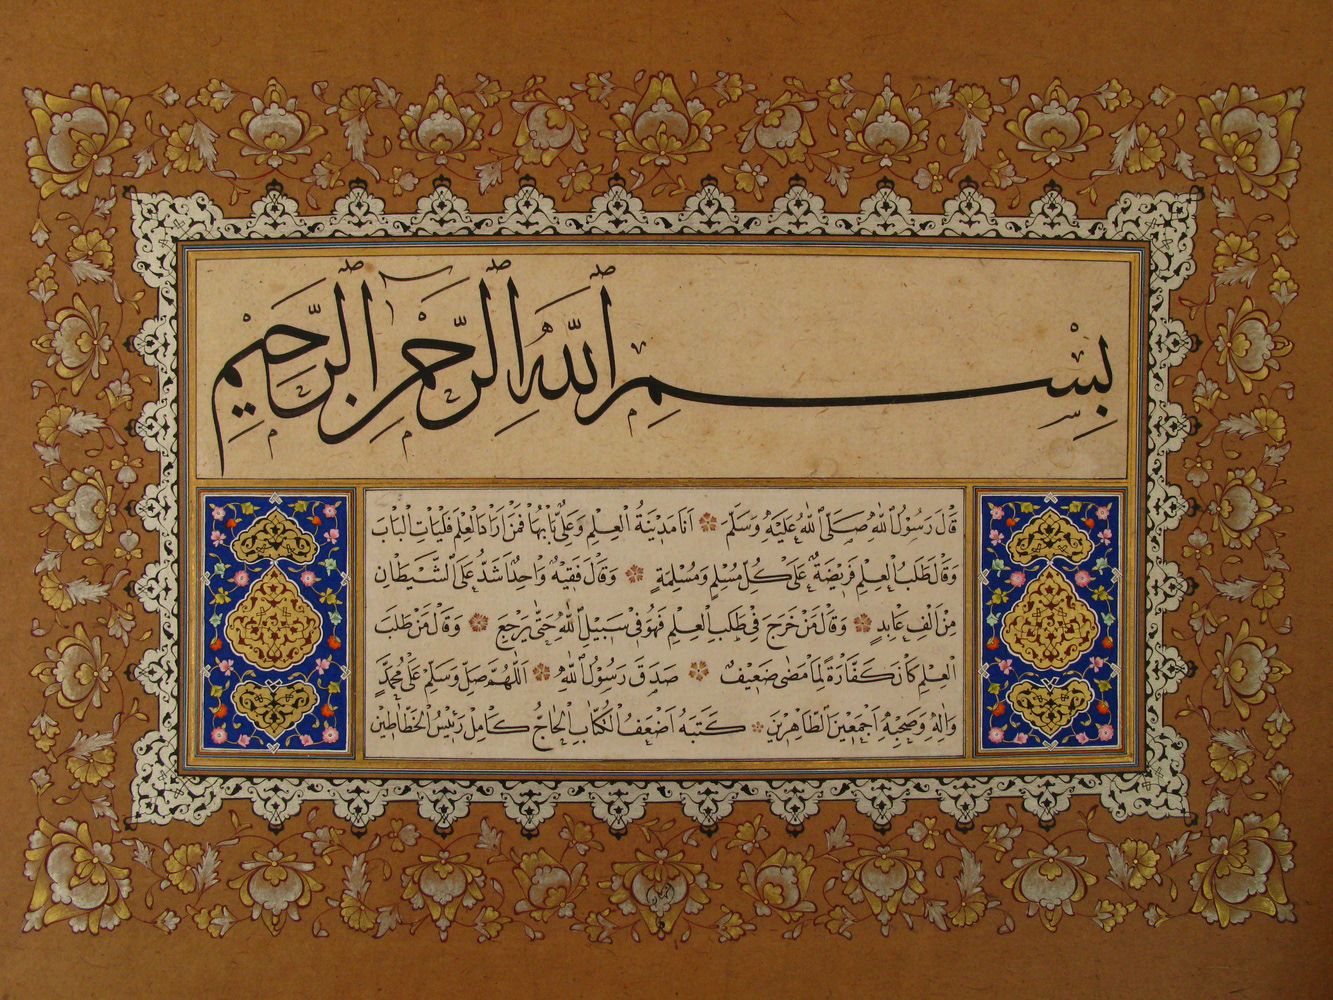 بِسْمِ اللّٰهِ الرَّحْمٰنِ الرَّحِيمِ
قَالَ رَسُولُ اللّٰهِ صَلَّى اللّٰهُ عَلَيْهِ وَسَلَّمَ اَنَا مَدِينَةُ الْعِلْمِ وَعَلِيٌّ بَابُهَا فَمَنْ اَرَادَ الْعِلْمَ فَلْيَاْتِ الْبَابَ
وَقَالَ طَلَبُ الْعِلْمِ فَرِيضَةٌ عَلَى كُلِّ مُسْلِمٍ وَمُسْلِمَةٍ وَقَالَ فَقِيهٌ وَاحِدٌ اَشَدُّ عَلَى الشَّيْطَانِ
مِنْ اَلْفِ عَابِدٍ وَقَالَ مَنْ خَرَجَ فِي طَلَبِ الْعِلْمِ فَهُوَ فِي سَبِيلِ اللّٰهِ حَتَّى يَرْجِعَ وَقَالَ مَنْ طَلَبَ
الْعِلْمَ كَانَ كَفَّارَةً لِمَا مَضَى ضَعِيفٌ صَدَقَ رَسُولُ اللّٰهِ اَللّٰهُمَّ صَلِّ وَسَلِّمْ عَلَى مُحَمَّدٍ
وَاٰلِهِ وَصَحْبِهِ اَجْمَعِينَ الطَّاهِرِينَ كَتَبَهُ اَضْعَفُ الْكُتَّابِ الْحَاجُّ كَامِلْ رَئِيسُ الْخَطَّاطِينَ